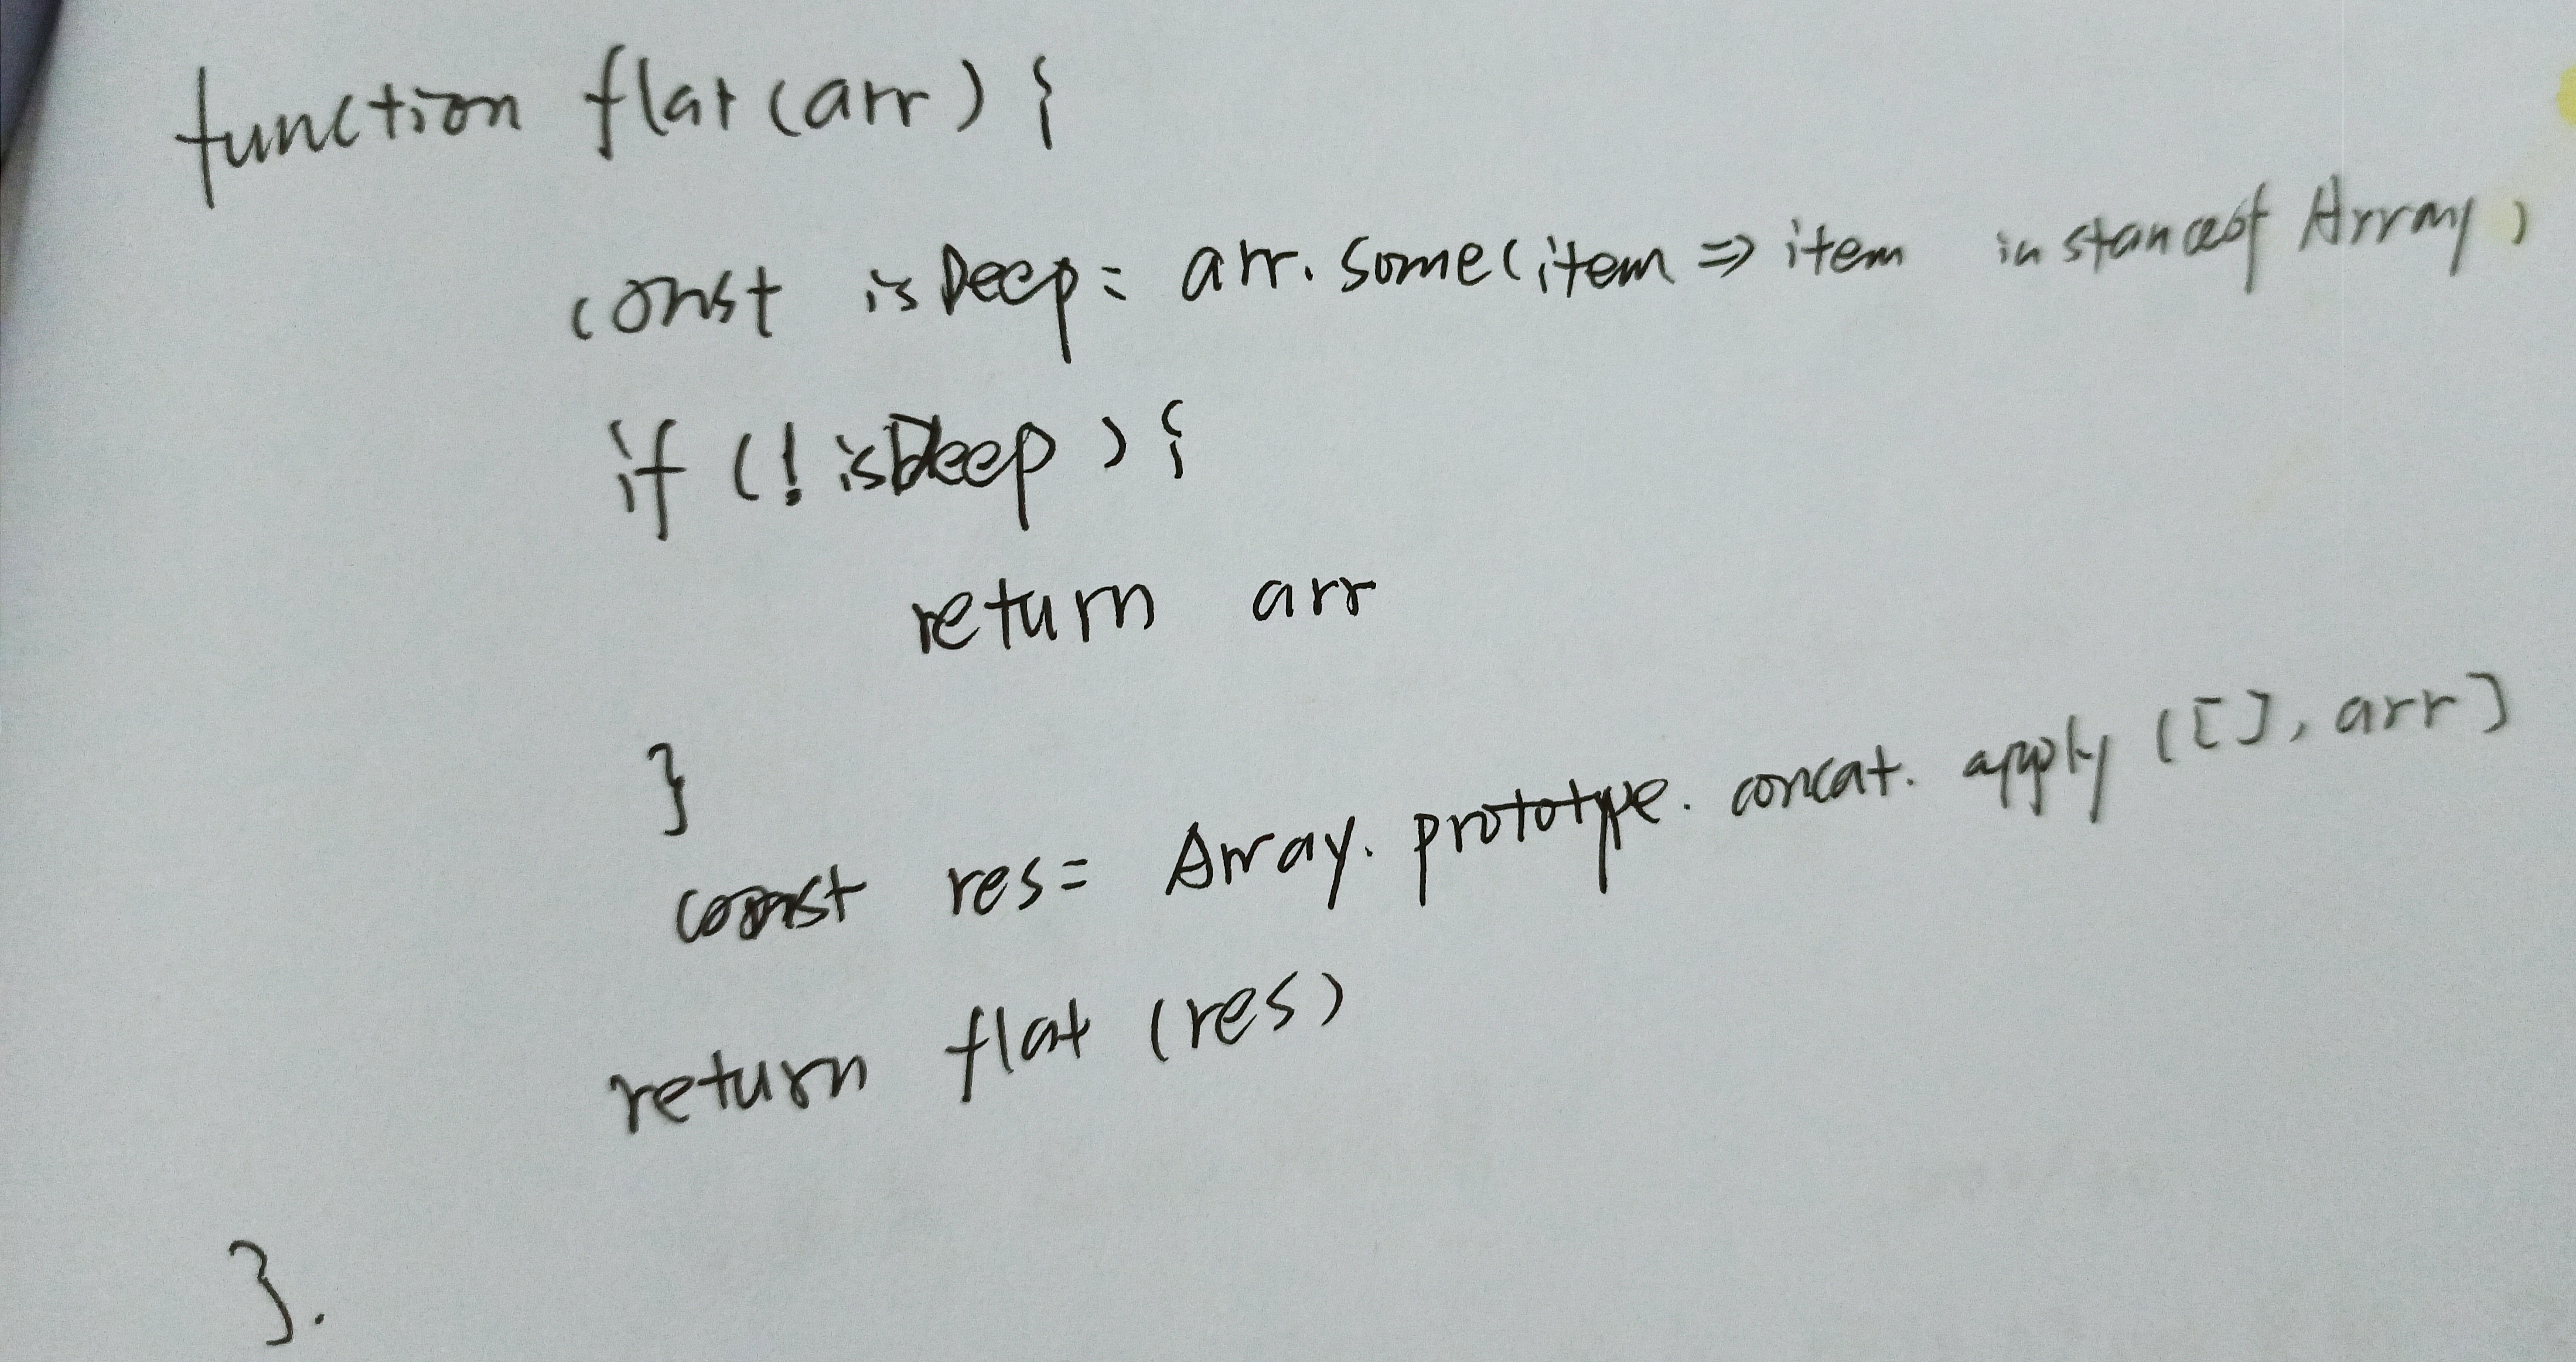 function flat(arr) {
const isDeep = arr.some(item => item instanceof Array)
if (!isDeep) {
return arr
}
const res = Array.prototype.concat.apply([], arr]
return flat (res)
}.